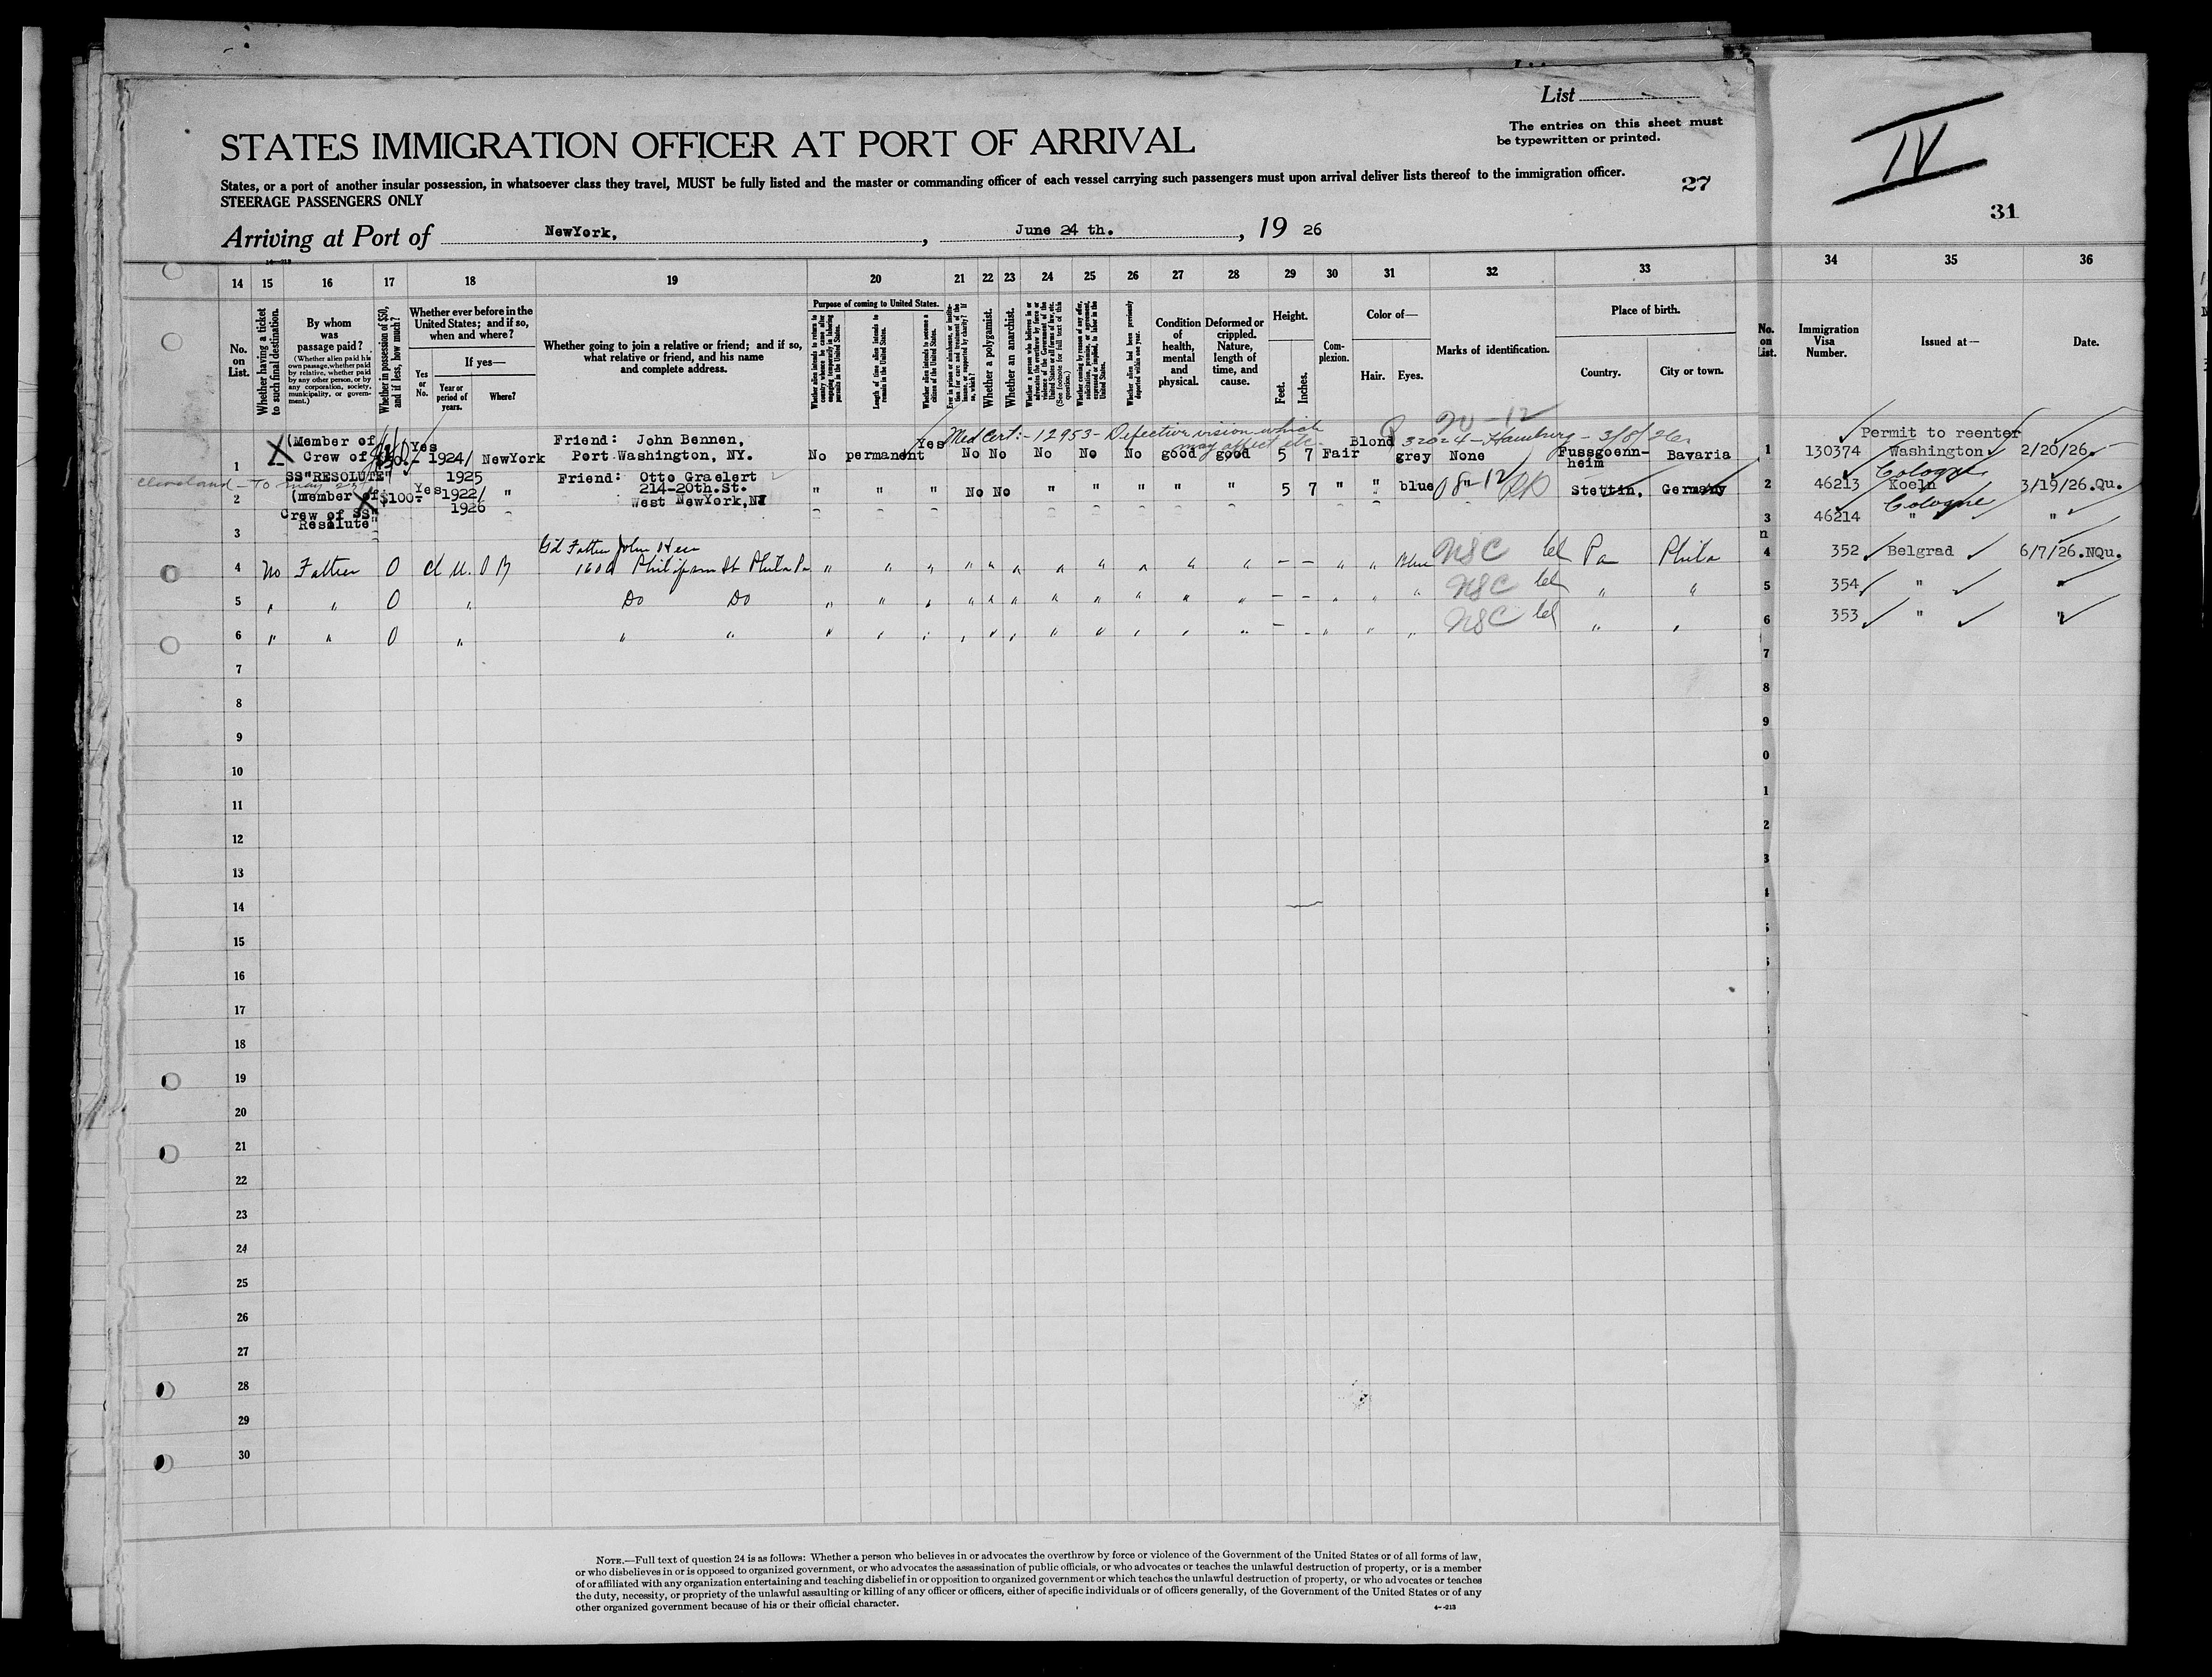 List
The entries on this sheet must
be typewritten or printed.
STATES IMMIGRATION OFFICER AT PORT OF ARRIVAL
States, or a port of another insular possession, in whatsoever class they travel, MUST be fully listed and the master or commanding officer of each vessel carrying such passengers must upon arrival deliver lists thereof to the immigration officer.
STEERAGE PASSENGERS ONLY
27
IV
31
Arriving at Port of NewYork, , June 24 th. , 19 26
14 15 16 17 18 19 20 21 22 23 24 25 26 27 28 29 30 31 32 33 34 35 36
No. on List.
Whether having a ticket to such final destination.
By whom was passage paid?
(Whether alien paid his own passage, whether paid by relative, whether paid by any other person, or by any corporation, society, municipality, or government.)
Whether in possession of $50, and if less, how much?
Whether ever before in the United States; and if so, when and where?
Yes or No.
If yes—
Year or period of years.
Where?
Whether going to join a relative or friend; and if so, what relative or friend, and his name and complete address.
Purpose of coming to United States.
Whether alien intends to return to country whence he came after engaging temporarily in laboring pursuits in the United States.
Length of time alien intends to remain in the United States.
Whether alien intends to become a citizen of the United States.
Ever in prison or almshouse, or institution for care and treatment of the insane, or supported by charity? If so, which?
Whether a polygamist.
Whether an anarchist.
Whether a person who believes in or advocates the overthrow by force or violence of the Government of the United States or all forms of law, etc. (See footnote for full text of this question.)
Whether coming by reason of any offer, solicitation, promise, or agreement, expressed or implied, to labor in the United States.
Whether alien had been previously deported within one year.
Condition of health, mental and physical.
Deformed or crippled. Nature, length of time, and cause.
Height.
Feet.
Inches.
Complexion.
Color of—
Hair.
Eyes.
Marks of identification.
Place of birth.
Country.
City or town.
No. on List.
Immigration Visa Number.
Issued at—
Date.
Med Cert:-12953- Defective vision which
may affect etc.
20-12
32024-Hamburg - 3/8/26
1 X (Member of Crew of SS"RESOLUTE" $50.- Yes 1924/1925 NewYork Friend: John Bennen, Port Washington, NY. No permanent Yes No No No No No good good 5 7 Fair Blond grey None Fussgoennheim Bavaria 1 130374 Permit to reenter Washington 2/20/26.
Cleveland - To May 25
2 (member of Crew of SS" Resolute" X $100- Yes 1922/1926 " Friend: Otto Graelert 214-20th.St. West NewYork,NJ " " " No No " " " " " 5 7 " " blue " 08-12 Stettin, Germany 2 46213 Koeln Cologne 3/19/26.Qu.
3 3 46214 " Cologne "
4 No Father 0 Gd Father John Hess 1604 Philipson St Phila Pa " " " " " " " " " " " - - " " Blue NSC Pa Phila 4 352 Belgrad 6/7/26.NQu.
5 " " 0 " Do Do " " " " " " " " " " " - - " " " NSC " " 5 354 " "
6 " " 0 " " " " " " " " " " " " " " - - " " " NSC " " 6 353 " "
7 7
8 8
9 9
10 0
11 1
12 2
13 3
14 4
15
16
17
18
19
20
21
22
23
24
25
26
27
28
29
30
NOTE.—Full text of question 24 is as follows: Whether a person who believes in or advocates the overthrow by force or violence of the Government of the United States or of all forms of law,
or who disbelieves in or is opposed to organized government, or who advocates the assassination of public officials, or who advocates or teaches the unlawful destruction of property, or is a member
of or affiliated with any organization entertaining and teaching disbelief in or opposition to organized government or which teaches the unlawful destruction of property, or who advocates or teaches
the duty, necessity, or propriety of the unlawful assaulting or killing of any officer or officers, either of specific individuals or of officers generally, of the Government of the United States or of any
other organized government because of his or their official character.